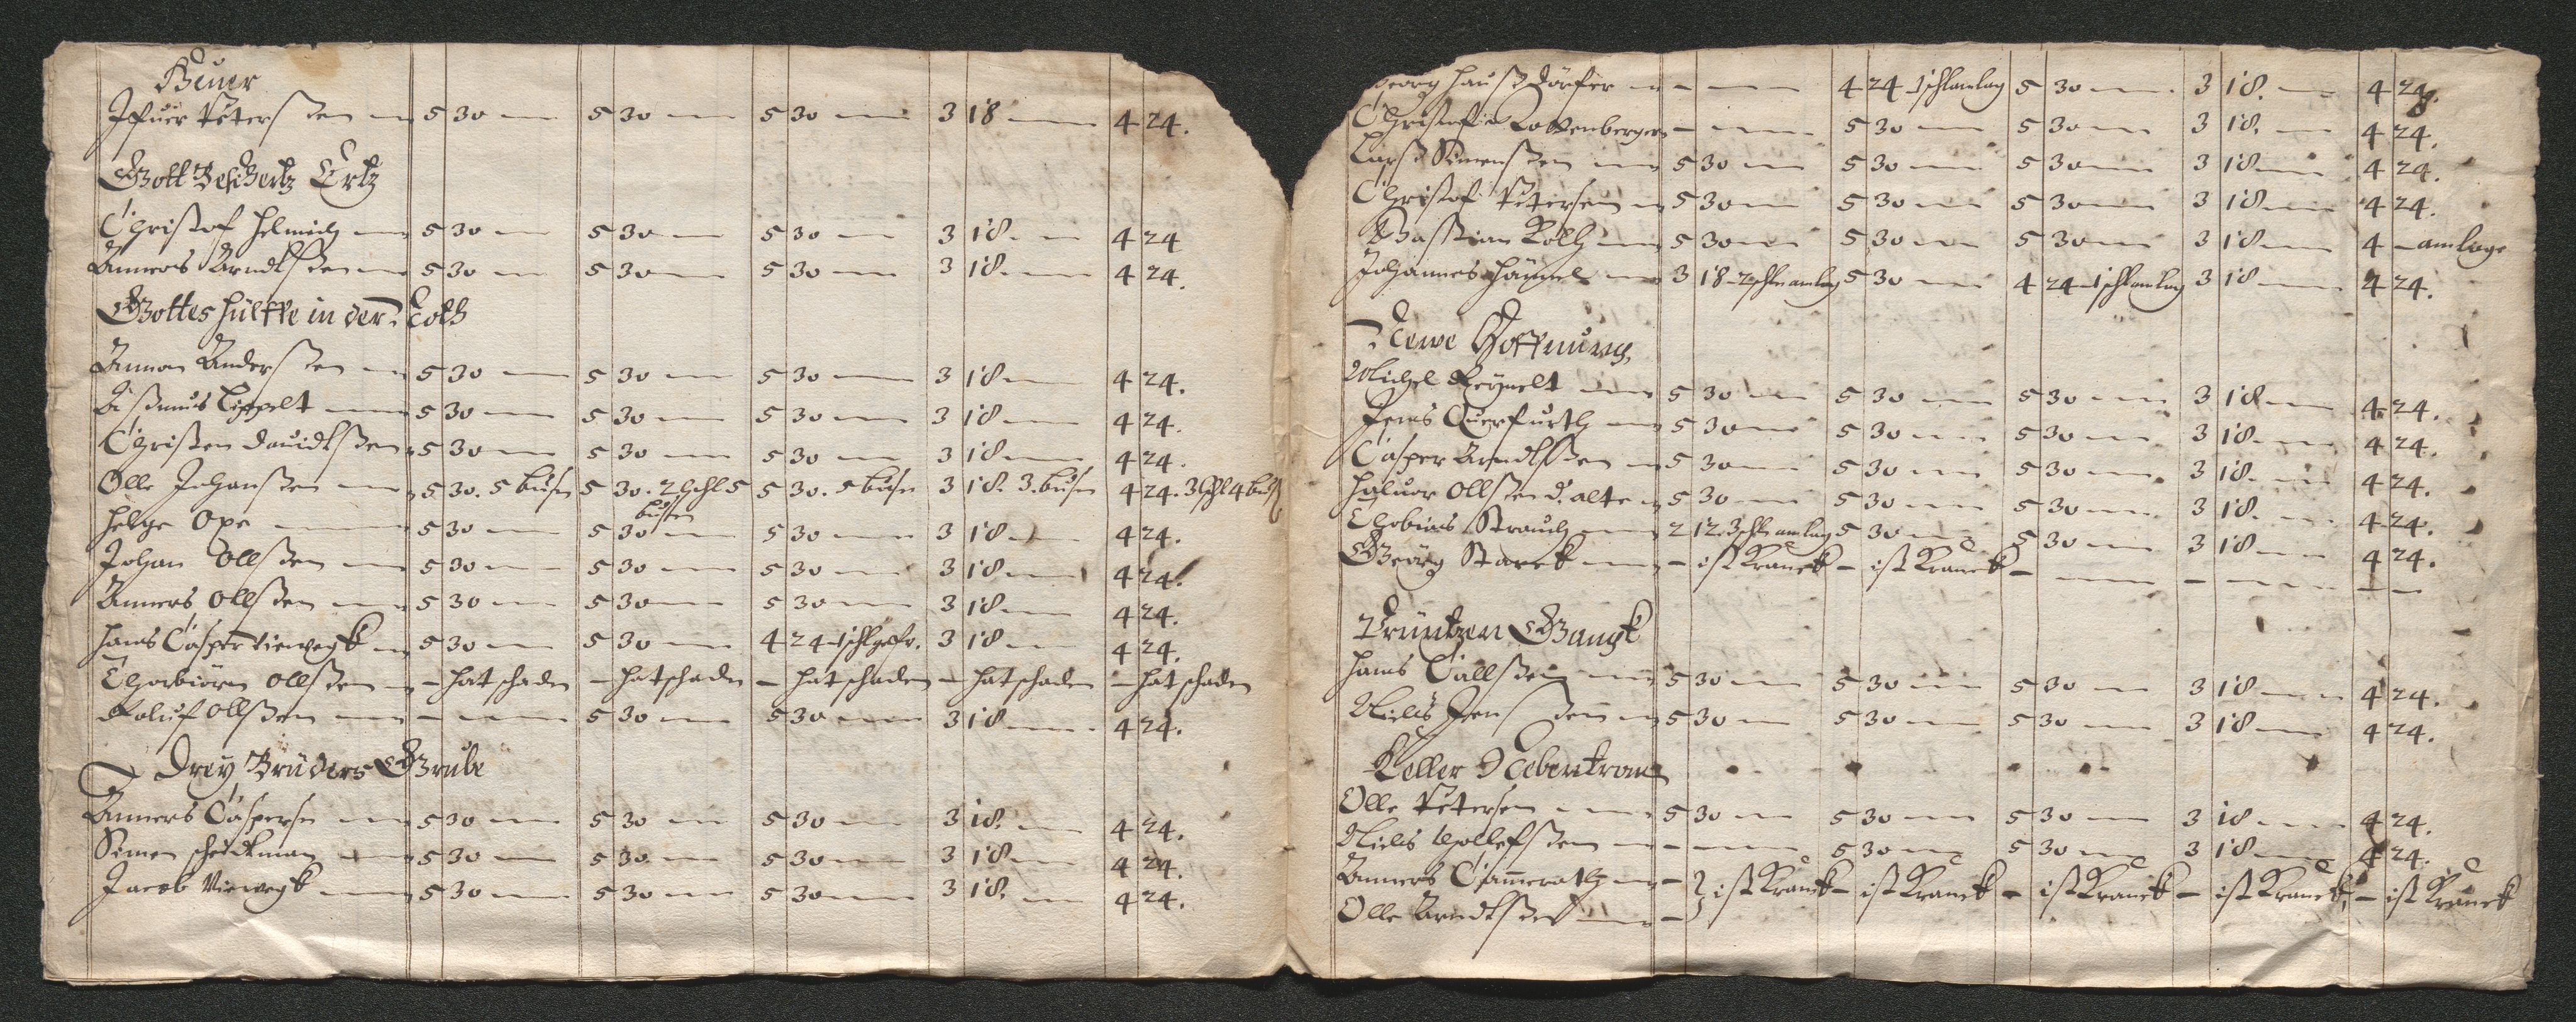 Beuer
Ifuer Peterßen 5 30 5 30 5 30 3 18 4 24.
Gott Beschertz Ertz
Christof Helmich 5 30 5 30 5 30 3 18. 4 24
Anners Arndtßen 5 30 5 30 5 30 3 18. 4 24.
Gottes hülffe in der Noth
Amon Anderßen 5 30 5 30 5 30 3 18 4 24.
Aßmus Lippelt 5 30 5 30 5 30 3 18 4 24.
Christen Dauidtßen 5 30 5 30 5 30 3 18 4 24.
Olle Johanßen 5 30. 5 bußn 5 30. 2 schl 5 5 30. 5 bußn 3 18. 3. bußn 4 24. 3 schl 4 buß
bußen
Helge Ope 5 30 5 30 5 30 3 18 4 24.
Johan Ollßen 5 30 5 30 5 30 3 18 4 24.
Anners Ollßen 5 30 5 30 5 30 3 18 4 24.
Hans Casper Viewegk 5 30 5 30 4 24 1 schl 3 18 4 24.
Thorbiörn Ollßen - hat schaden - hat schaden - hat schaden - hat schaden - hat schaden
Roluf Ollßen - 5 30 5 30 3 18 4 24.
Drey Brüders Grube
Anners Caspersn 5 30 5 30 5 30 3 18. 4 24.
Simon Scheidtman 5 30 5 30 5 30 3 18 4 24.
Jacob Viewegk 5 30 5 30 5 30 3 18. 4 24.
Georg Haußdörfer - 4 24 1 schl amlag 5 30 3 18. 4 24.
Christofer Lottenberger - 5 30 5 30 3 18. 4 24.
Larß Simenßen 5 30 5 30 5 30 3 18 4 24.
Christof Petersen 5 30 5 30 5 30 3 18 4 24.
Bastian Rolh 5 30 5 30 5 30 3 18 4 - amlage
Johannes Hämel 3 18 - 2 schle amlag 5 30 4 24 - 1 schl amlag 3 18 4 24.
Newe Hoffnung
Michel Reymelt 5 30 5 30 5 30 3 18 4 24.
Jens Querfurth 5 30 5 30 5 30 3 18. 4 24.
Casper Arndtßen 5 30 5 30 5 30 3 18. 4 24.
Haluor Ollßen d. alte 5 30 5 30 5 30 3 18. 4 24.
Thobias Strauch 2 12. 3 schle amlag 5 30 5 30 3 18 4 24.
Georg Starck - ist Kranck - ist Kranck - - -
Printzen Gangk
Hans Callßen 5 30 5 30 5 30 3 18 4 24.
Niels Jenßen 5 30 5 30 5 30 3 18 4 24.
Keller Nebentrom
Olle Petersen 5 30 5 30 5 30 3 18 4 24.
Niels Wollefßen - 5 30 5 30 3 18 4 24.
Anners Camerath - ist Kranck - ist Kranck - ist Kranck - ist Kranck, - ist Kranck
Olle Arndtßen -